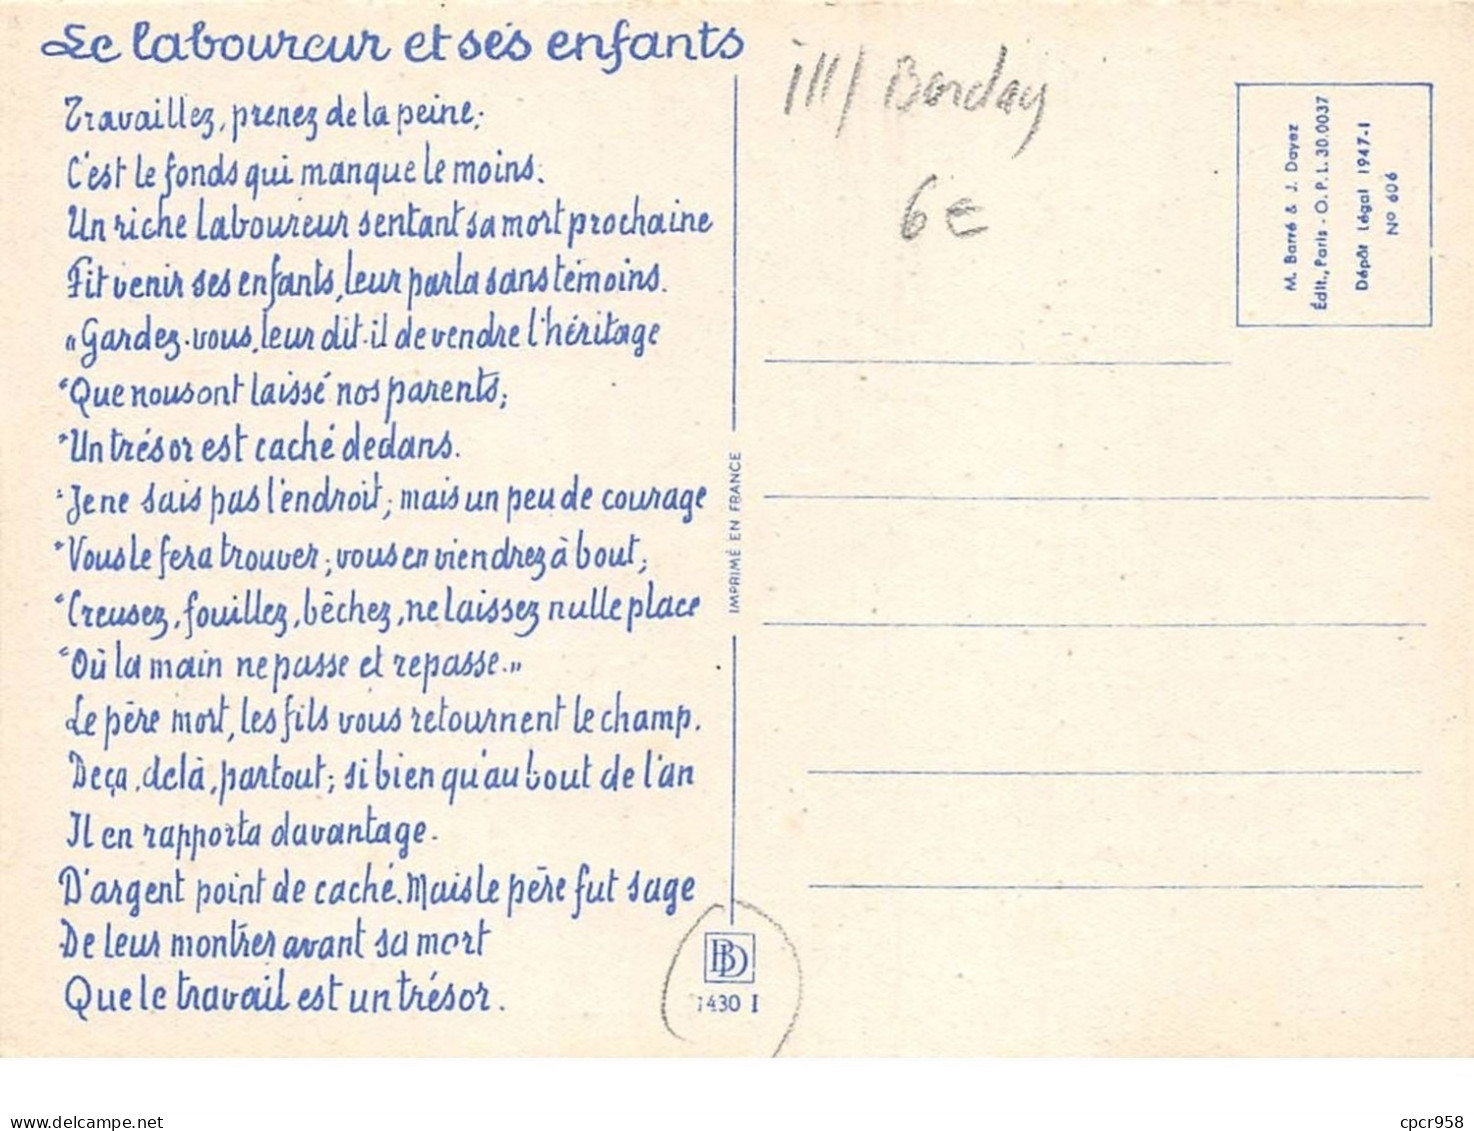 Le laboureur et ses enfants
Travaillez, prenez de la peine;
C'est le fonds qui manque le moins.
Un riche laboureur sentant sa mort prochaine
Fit venir ses enfants, leur parla sans témoins.
"Gardez-vous, leur dit-il de vendre l'héritage
"Que nous ont laissé nos parents;
"Un trésor est caché dedans.
"Je ne sais pas l'endroit; mais un peu de courage
"Vous le fera trouver; vous en viendrez à bout;
"Creusez, fouillez, bêchez, ne laissez nulle place
"Où la main ne passe et repasse."
Le père mort, les fils vous retournent le champ.
Deça, delà, partout; si bien qu'au bout de l'an
Il en rapporta davantage.
D'argent point de caché. Mais le père fut sage
De leur montrer avant sa mort
Que le travail est un trésor.
IMPRIMÉ EN FRANCE
BD
1430 I
ill/ Barday
6€
M. Barré & J. Dayez
Édit., Paris - O. P. L. 30.0037
Dépôt Légal 1947-I
No 606
cpcr958